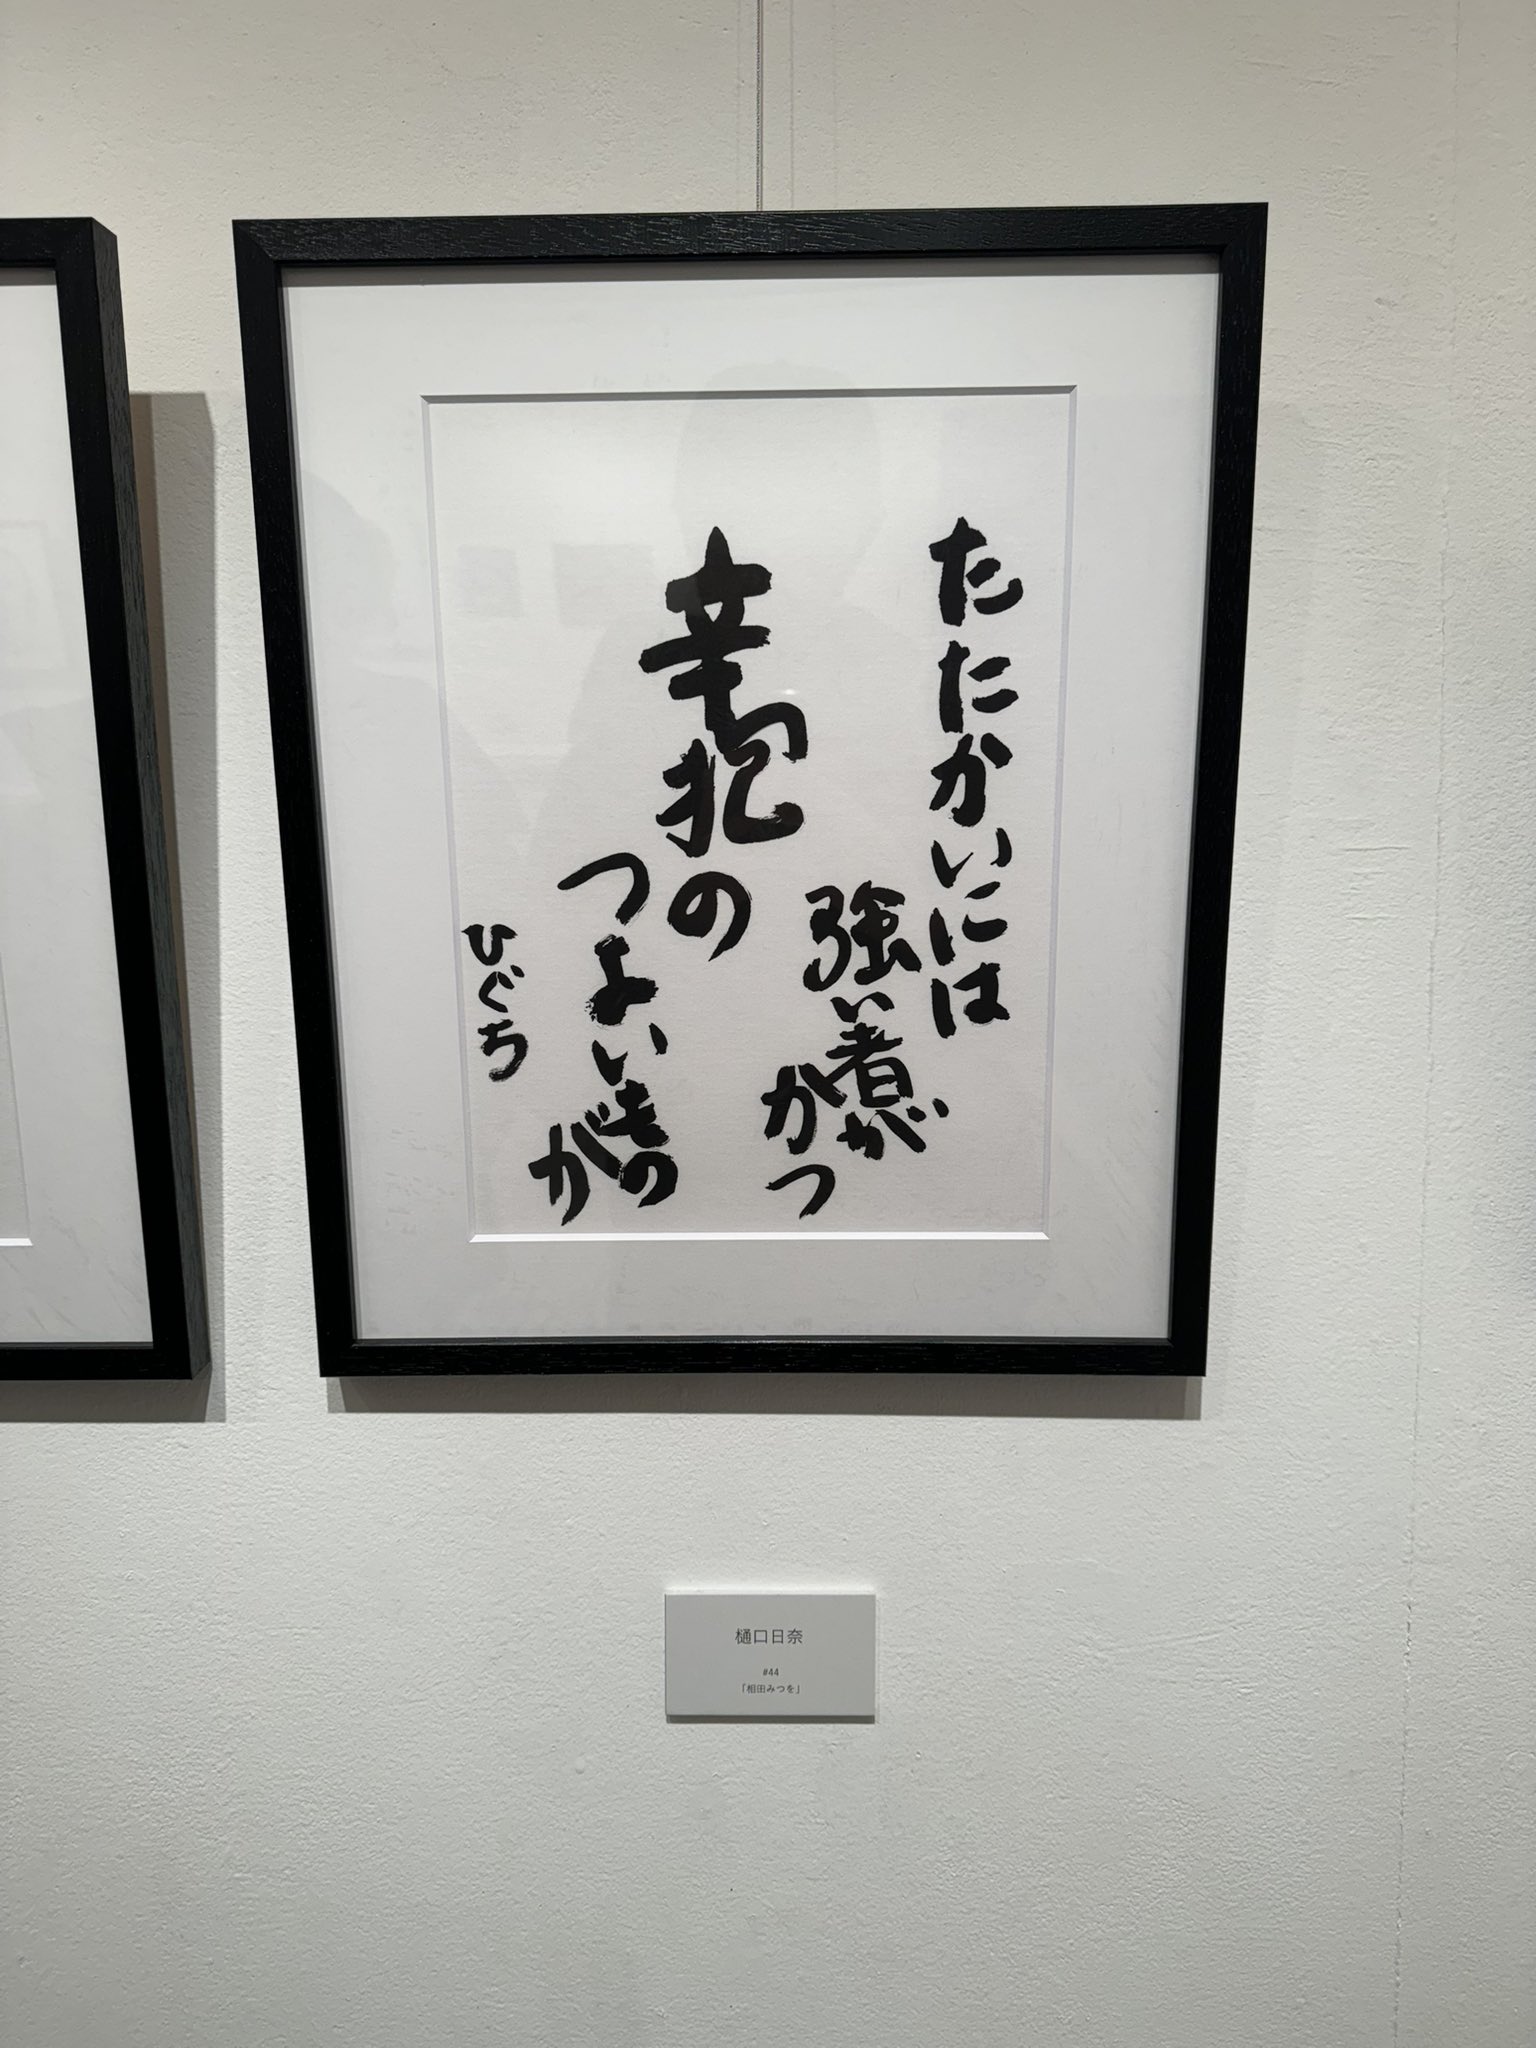 たたかいには
強い者が
かつ
辛抱の
つよいもの
が
ひぐち
樋口日奈
#44
「相田みつを」